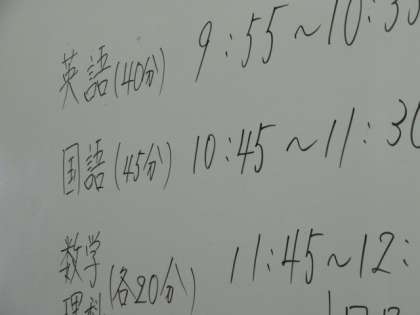 英語(40分) 9:55~10:35
国語(45分) 10:45~11:30
数学 11:45~12:
理科(各20分)